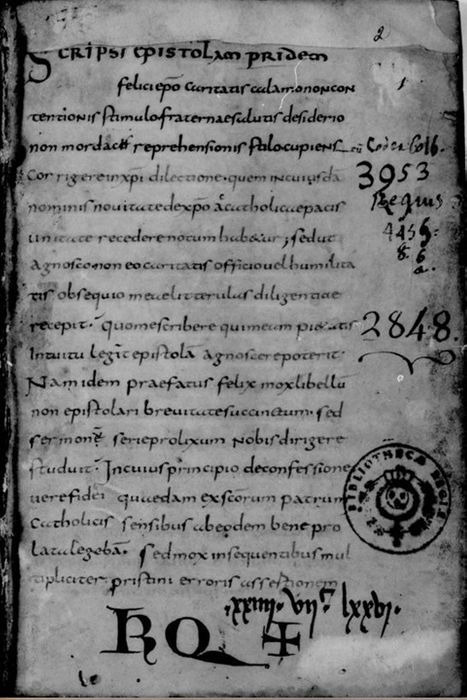 2
SCRIPSI EPISTOLAM PRIDEM
felici epo caritatis calamo non con
1
tentionis stimulo fraternae salutis desiderio
non mordacis reprehensionis stilo cupiens
Codex Colb.
Corrigere in xpi dilectione. quem in cuiusdā
3953
nominis novitate de xpo a catholicae pacis
Regius
unitate recedere notum habetur, sed ut
4456.
8. 6
a.
agnosco non eo caritatis officio vel humilita
tis obsequio meae litterulas diligentiae
recepit. quo me scribere qui meam pietatis
2848.
Intuitu legit epistolā agnoscere poterit.
Nam idem praefatus felix mox libellū
non epistolari brevitate succinctum. sed
sermonē serie prolixum nobis dirigere
studuit. In cuius principio de confessione
verae fidei quaedam ex scorum patrum
Catholicis sensibus ab eodem bene pro
lata legebā. Sed mox in sequentibus mul
tipliciter pristini erroris assertionem
BIBLIOTHECA REGIA
.xxiiii. vii. lxxvi.